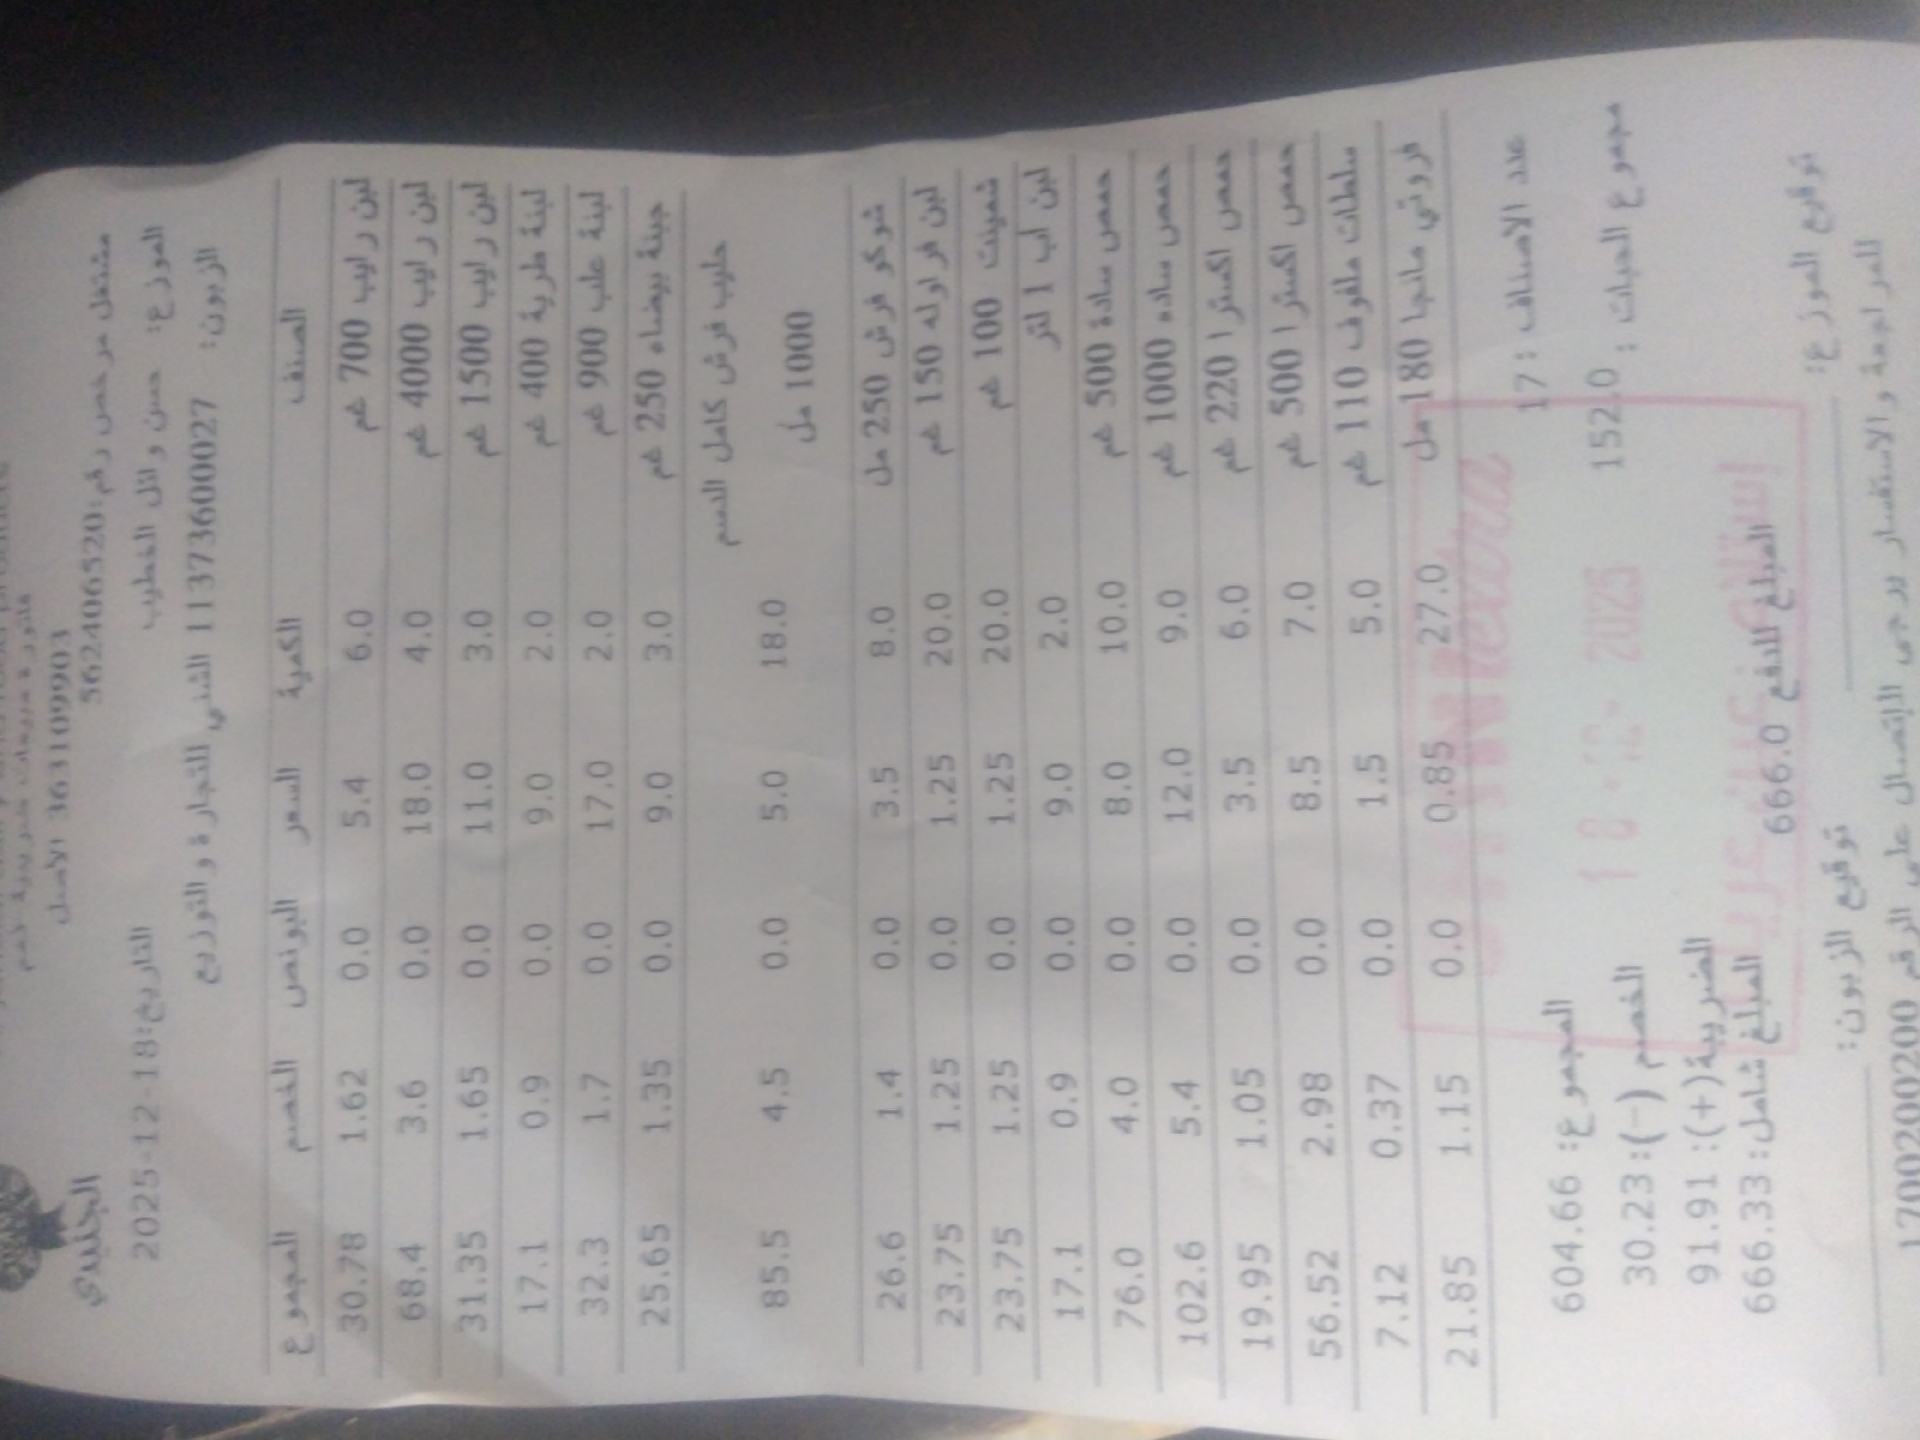 الجنيدي
فاتورة مبيعات ضريبية
363109903 الاصل
مشتغل مرخص رقم:562406520
الموزع: حسن وائل الخطيب التاريخ:18-12-2025
الزبون: 11373600027 الشني للتجارة و التوزيع
الصنف الكمية السعر البونص الخصم المجموع
لبن رايب 700 غم 6.0 5.4 0.0 1.62 30.78
لبن رايب 4000 غم 4.0 18.0 0.0 3.6 68.4
لبن رايب 1500 غم 3.0 11.0 0.0 1.65 31.35
لبنة طرية 400 غم 2.0 9.0 0.0 0.9 17.1
لبنة علب 900 غم 2.0 17.0 0.0 1.7 32.3
جبنة بيضاء 250 غم 3.0 9.0 0.0 1.35 25.65
حليب فرش كامل الدسم
1000 مل 18.0 5.0 0.0 4.5 85.5
شوكو فرش 250 مل 8.0 3.5 0.0 1.4 26.6
لبن فراوله 150 غم 20.0 1.25 0.0 1.25 23.75
شمينت 100 غم 20.0 1.25 0.0 1.25 23.75
لبن اب 1 لتر 2.0 9.0 0.0 0.9 17.1
حمص سادة 500 غم 10.0 8.0 0.0 4.0 76.0
حمص ساده 1000 غم 9.0 12.0 0.0 5.4 102.6
حمص اكسترا 220 غم 6.0 3.5 0.0 1.05 19.95
حمص اكسترا 500 غم 7.0 8.5 0.0 2.98 56.52
سلطات ملفوف 110 غم 5.0 1.5 0.0 0.37 7.12
فروتي مانجا 180 مل 27.0 0.85 0.0 1.15 21.85
عدد الاصناف : 17 المجموع: 604.66
مجموع الحبات : 152.0 الخصم (-): 30.23
الضريبة(+): 91.91
المبلغ شامل: 666.33
المبلغ للدفع 666.0
extra
18 - 12 - 2025
توقيع الموزع: توقيع الزبون:
للمراجعة و الاستفسار يرجى الإتصال على الرقم 1700200200